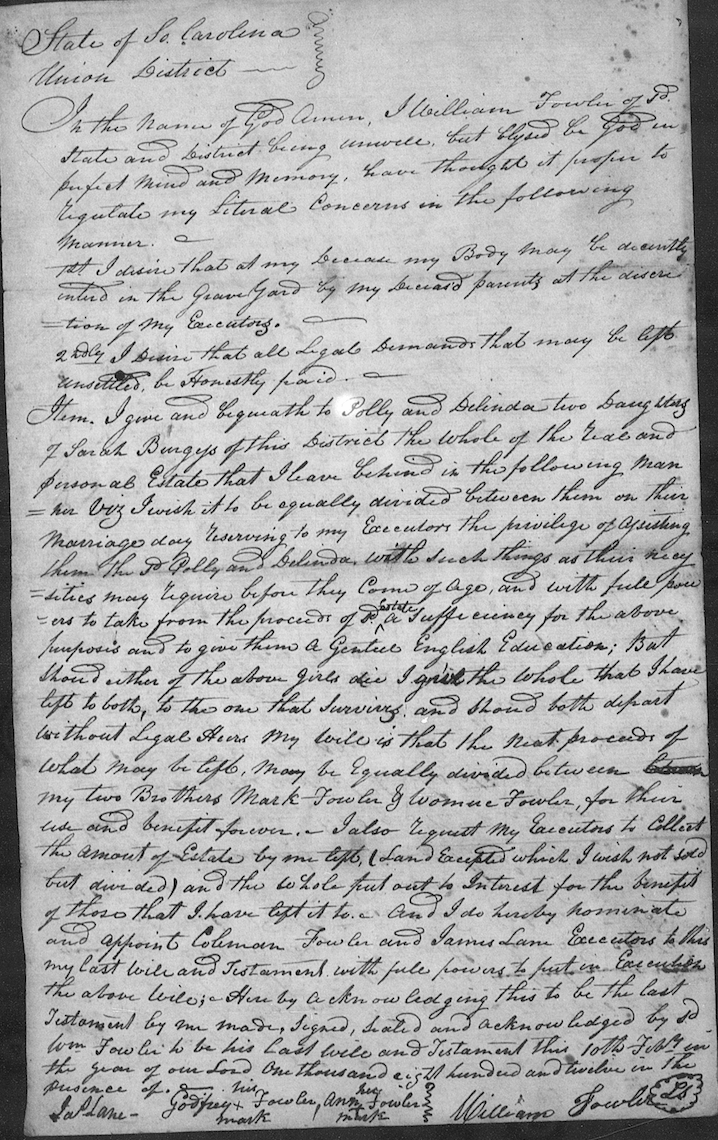 State of So. Carolina
Union District
In the Name of God Amen, I William Fowler of sd.
State and District being unwell, but blessed be God in
perfect Mind and Memory, have thought it proper to
regulate my Literal Concerns in the following
Manner.
1st I desire that at my Decease my Body may be decently
interd in the Grave Yard by my Deceasd parents at the discre
=tion of my Executors.
2ndly I Desire that all Legal Demands that may be left
unsettled, be Honestly paid.
Item. I give and bequeath to Polly and Delinda two Daughters
of Sarah Burgess of this District the whole of the Real and
personal Estate that I leave behind in the following Man
=ner Viz I wish it to be equally divided between them on their
Marriage day reserving to my Executors the privilege of assisting
them the sd Polly and Delinda, with such things as their necy
=sities may require before they Come of Age, and with full pow
=ers to take from the proceeds of sd. estate A Sufficiency for the above
purposes and to give them A Genteel English Education; But
should either of the above girls die I give the whole that I have
left to both, to the one that Survives. and should both depart
without Legal Heirs My Will is that the Neat proceeds of
what may be left, may be Equally divided between
my two Brothers Mark Fowler & Womuc Fowler, for their
use and benefit forever. I also request My Executors to Collect
the Amount of Estate by me left, (Land Excepted which I wish not sold
but divided) and the whole put out to Interest for the benefit
of those that I have left it to. And I do hereby nominate
and Appoint Coleman Fowler and James Lane Executors to this
my last Will and Testament with full powers to put in Execution
the above Will; Here by Acknowledging this to be the last
Testament by me made, Signed, Sealed and Acknowledged by sd
Wm Fowler to be his last Will and Testament this 10th Feby in
the year of our Lord One thousand eight hundred and twelve in the
presence of.
Jas Lane Godfrey his + mark Fowler, Ann her + mark Fowler William Fowler LS